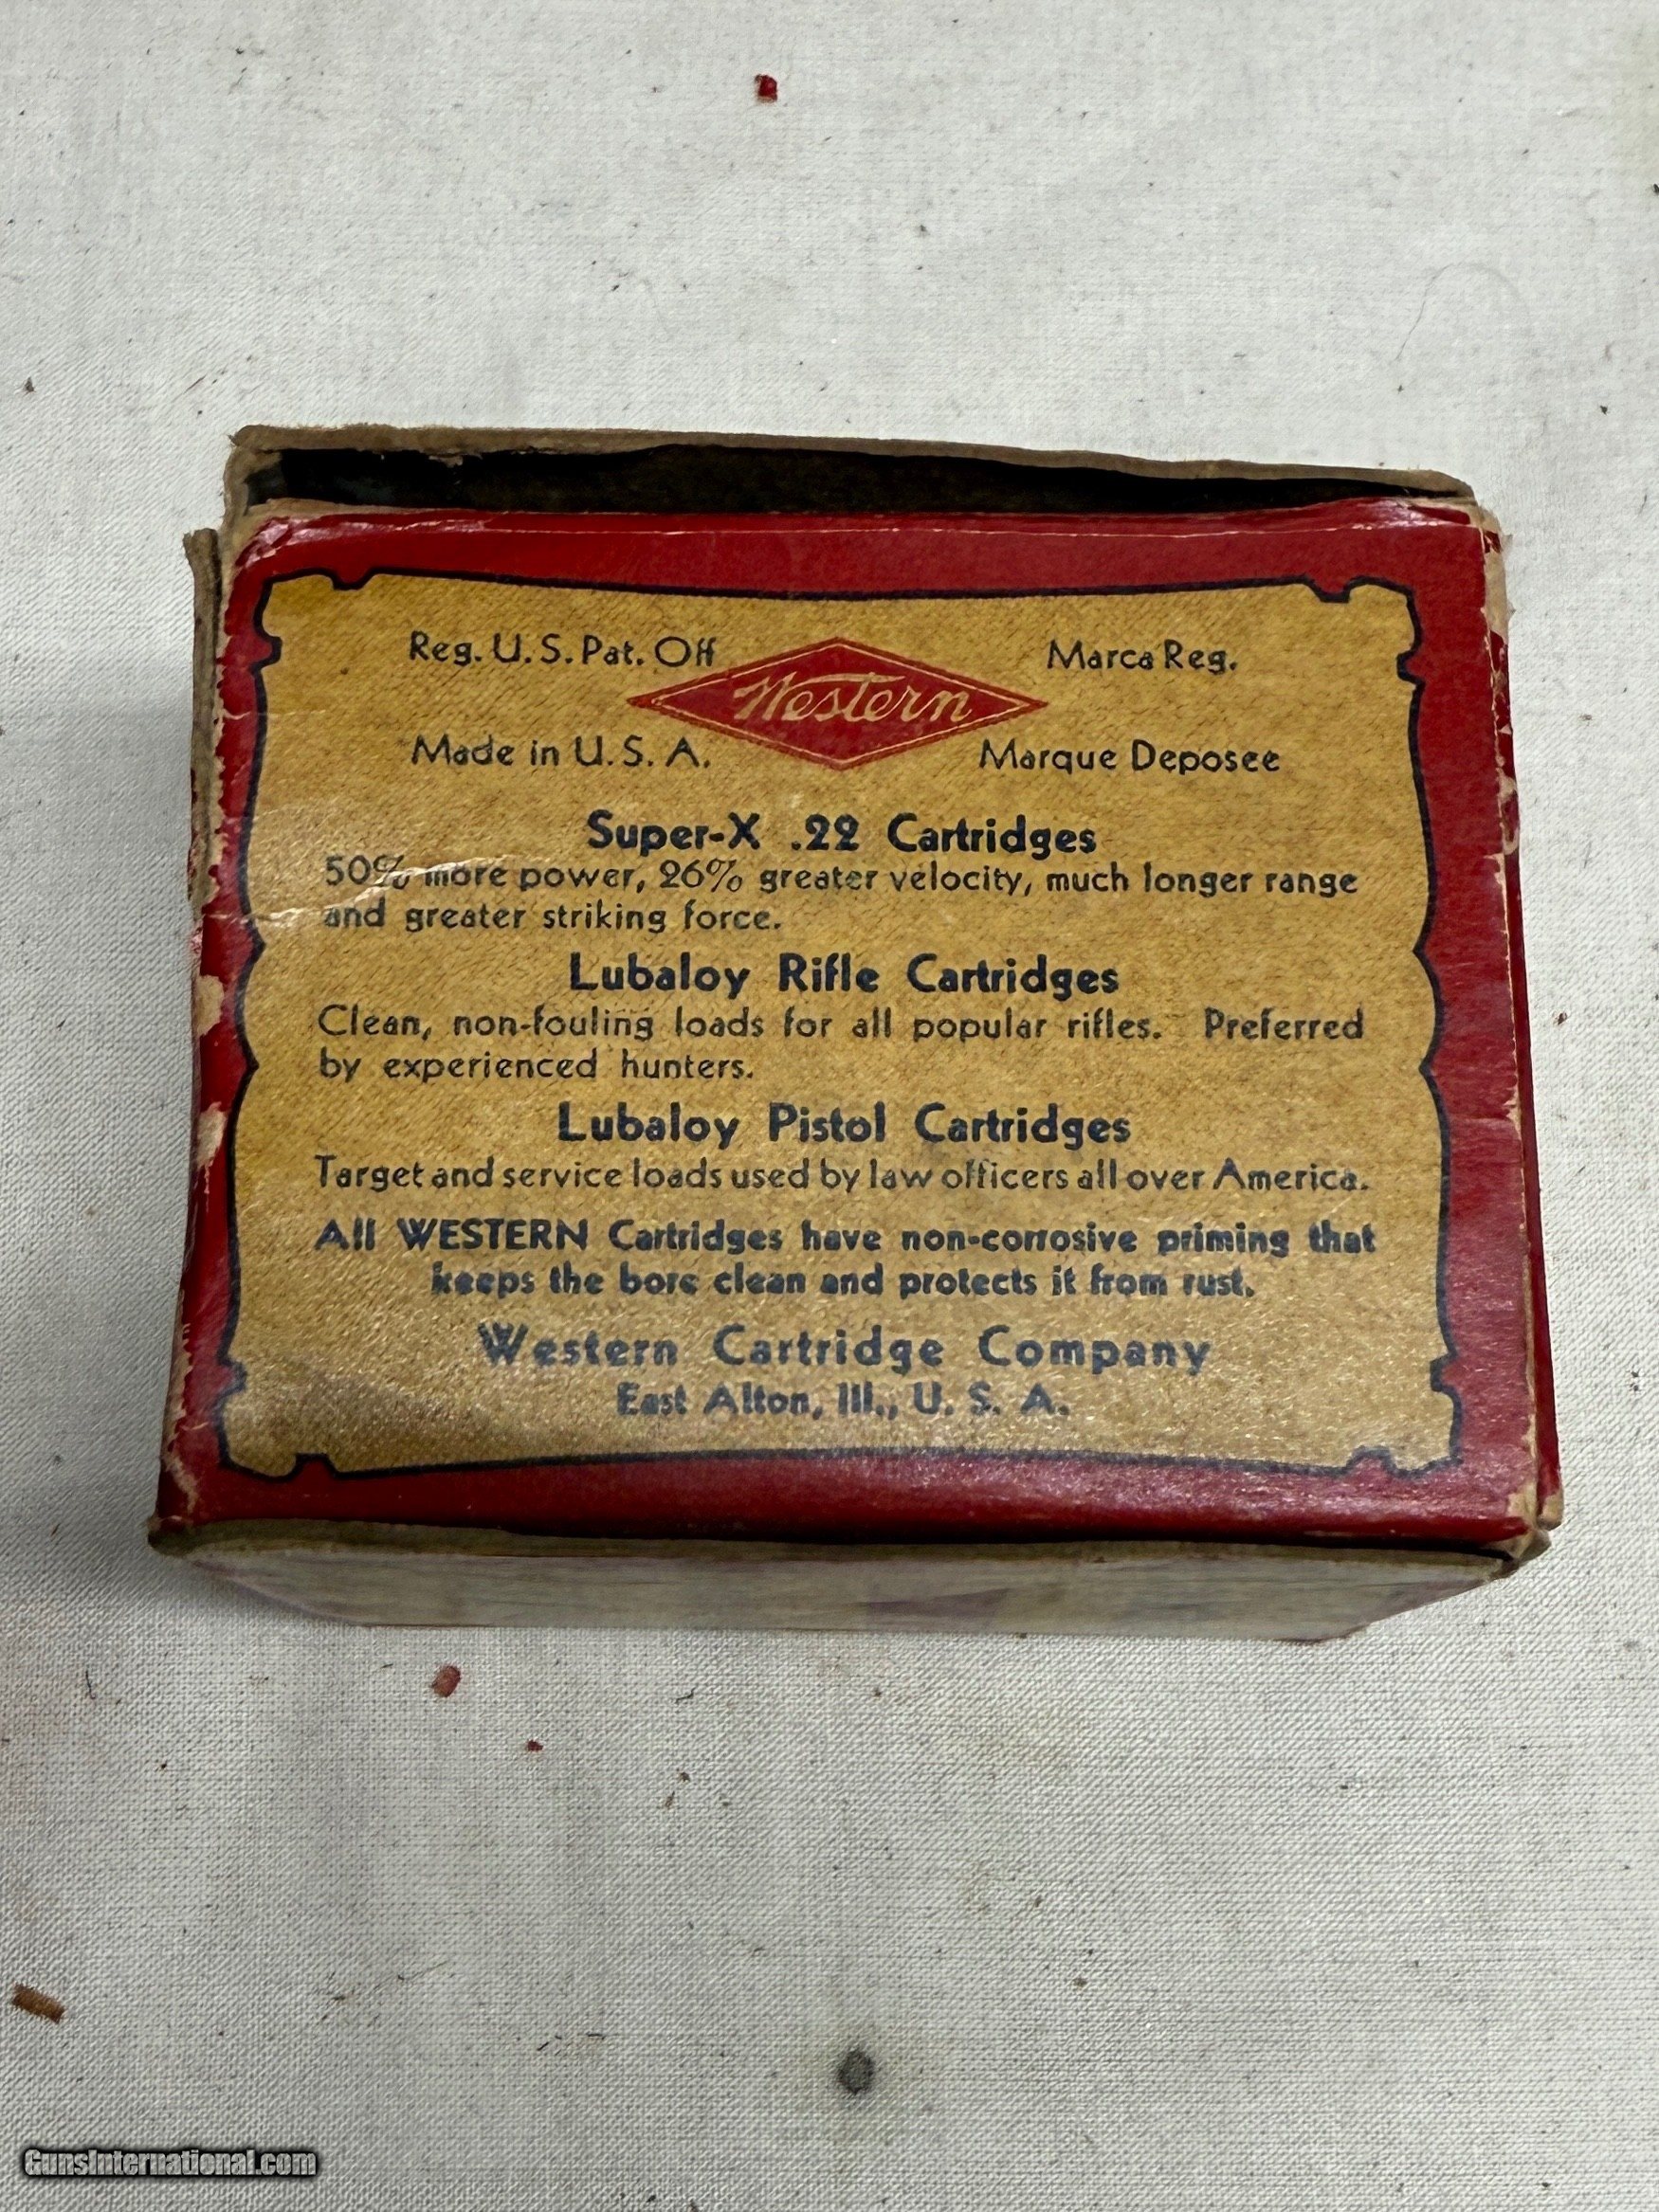 Reg. U. S. Pat. Off
Marca Reg.
Western
Made in U. S. A.
Marque Deposee
Super-X .22 Cartridges
50% more power, 26% greater velocity, much longer range
and greater striking force.
Lubaloy Rifle Cartridges
Clean, non-fouling loads for all popular rifles. Preferred
by experienced hunters.
Lubaloy Pistol Cartridges
Target and service loads used by law officers all over America.
All WESTERN Cartridges have non-corrosive priming that
keeps the bore clean and protects it from rust.
Western Cartridge Company
East Alton, Ill., U. S. A.
GunsInternational.com